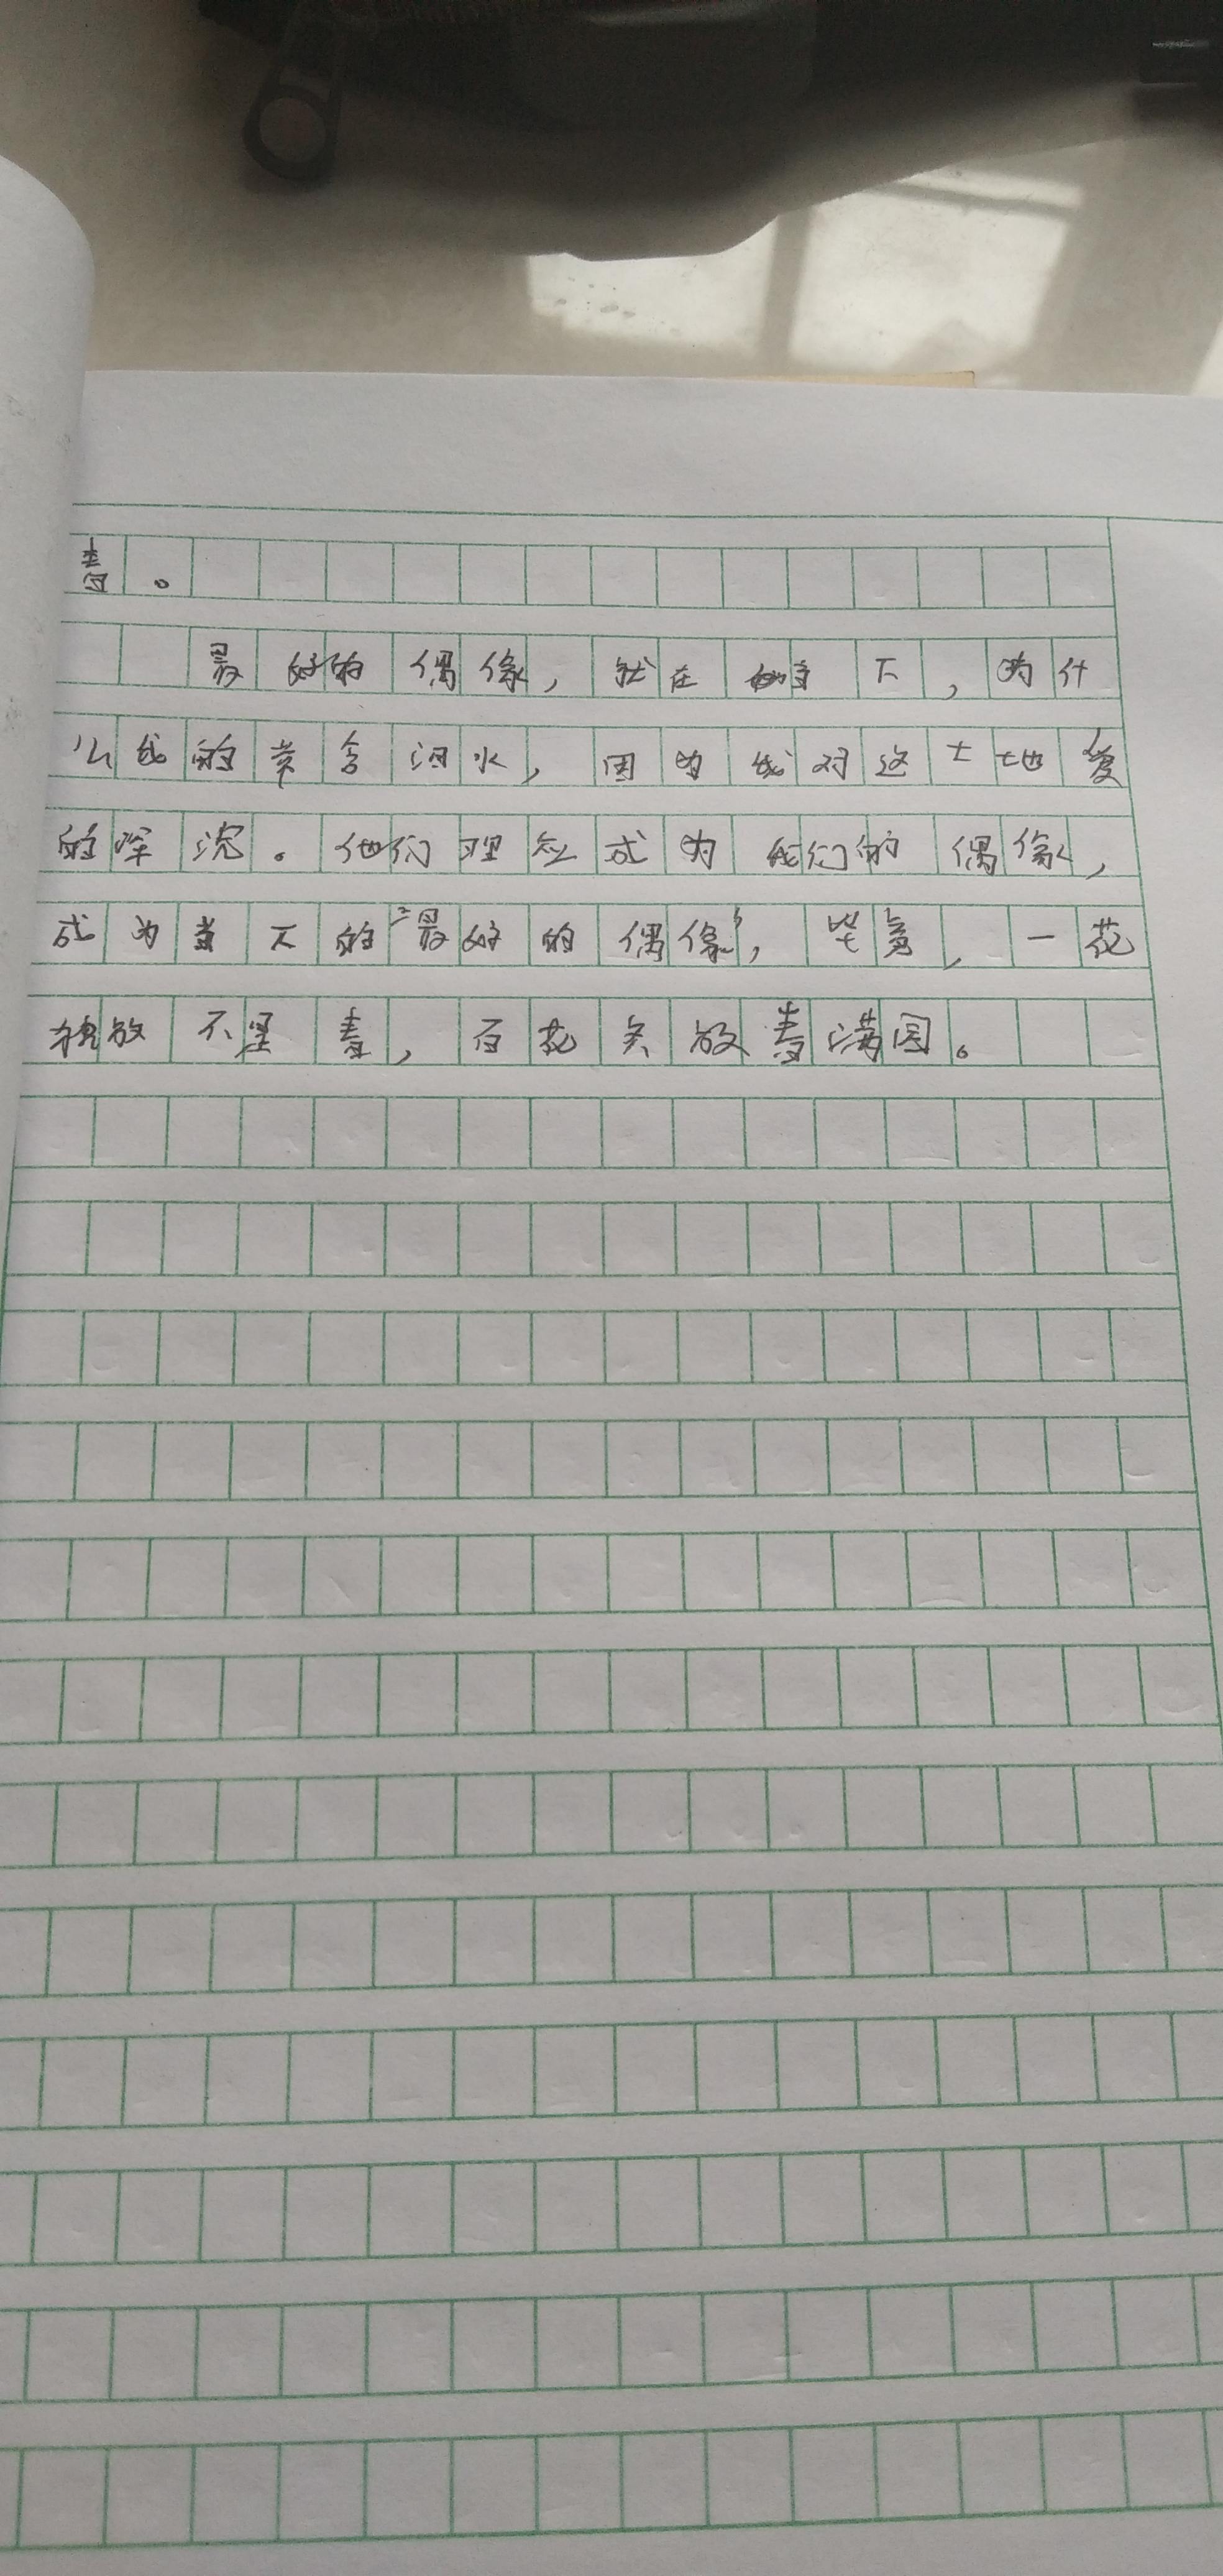 春。
最好的偶像,就在当下,为什
么我的常含泪水,因为我对这土地爱
的深沉。他们理应成为我们的偶像,
成为当下的“最好的偶像”,毕竟,一花
独放不是春,百花齐放春满园。